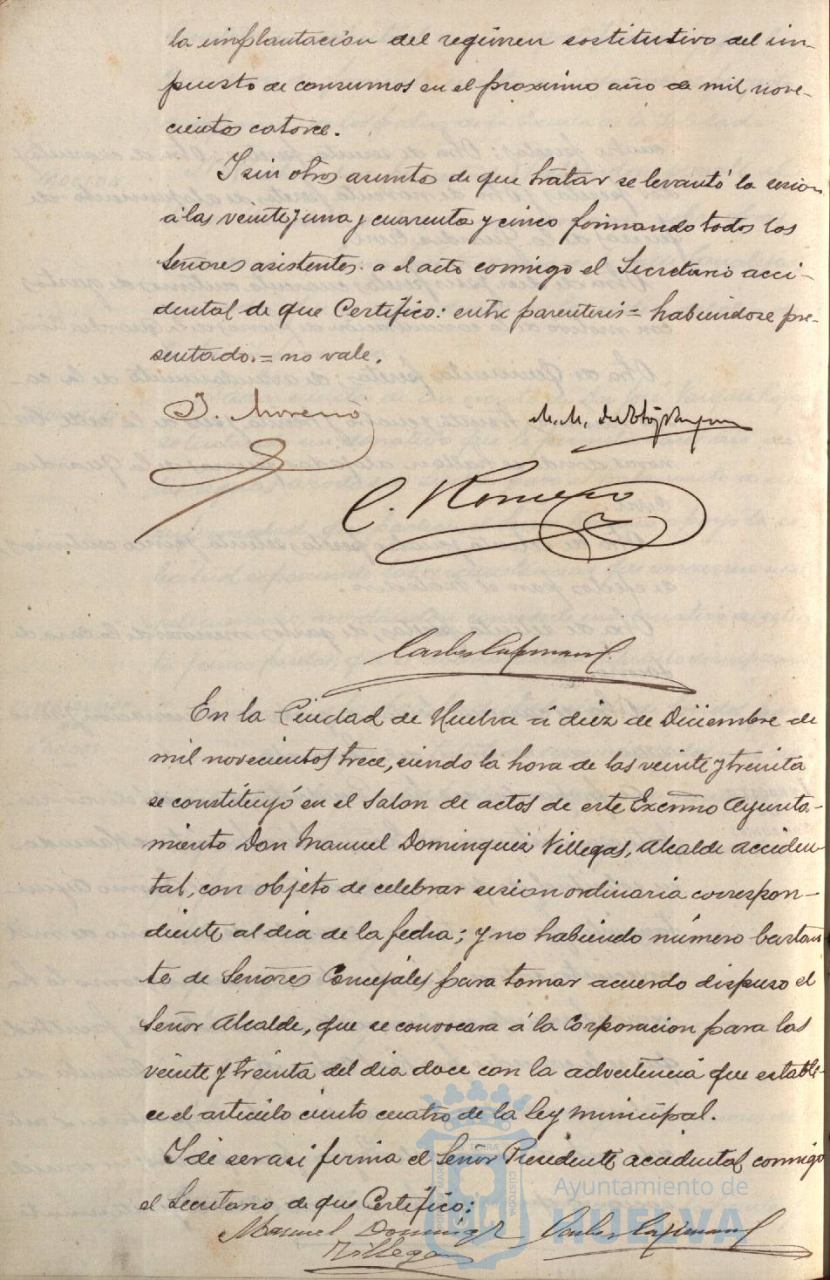 la implantacion del regimen sostitutivo del im-
puesto de consumos en el proximo año de mil nove-
cientos catorce.
Y sin otros asuntos de que tratar se levantó la sesion
á las veinte y una y cuarenta y cinco firmando todos los
Señores asistentes a el acto conmigo el Secretario acci-
dental de que Certifico: entre parentesis = habiendose pre-
sentado. = no vale.
J. Moreno
M. M. de
C. Romero
Carlos
En la Ciudad de Huelva á diez de Diciembre de
mil novecientos trece, siendo la hora de las veinte y treinta
se constituyó en el Salon de actos de este Excmo Ayunta-
miento Don Manuel Dominguez Villegas, Alcalde acciden-
tal, con objeto de celebrar sesion ordinaria correspon-
diente al dia de la fecha; y no habiendo número bastan-
te de Señores Concejáles para tomar acuerdo dispuso el
Señor Alcalde, que se convocara á la Corporacion para las
veinte y treinta del dia doce con la advertencia que estable-
ce el articulo ciento cuatro de la ley municipal.
Y de ser asi firma el Señor Presidente accidental conmigo
el Secretario de que Certifico:
Manuel Domingz Carlos
Villegas
Ayuntamiento de
HUELVA